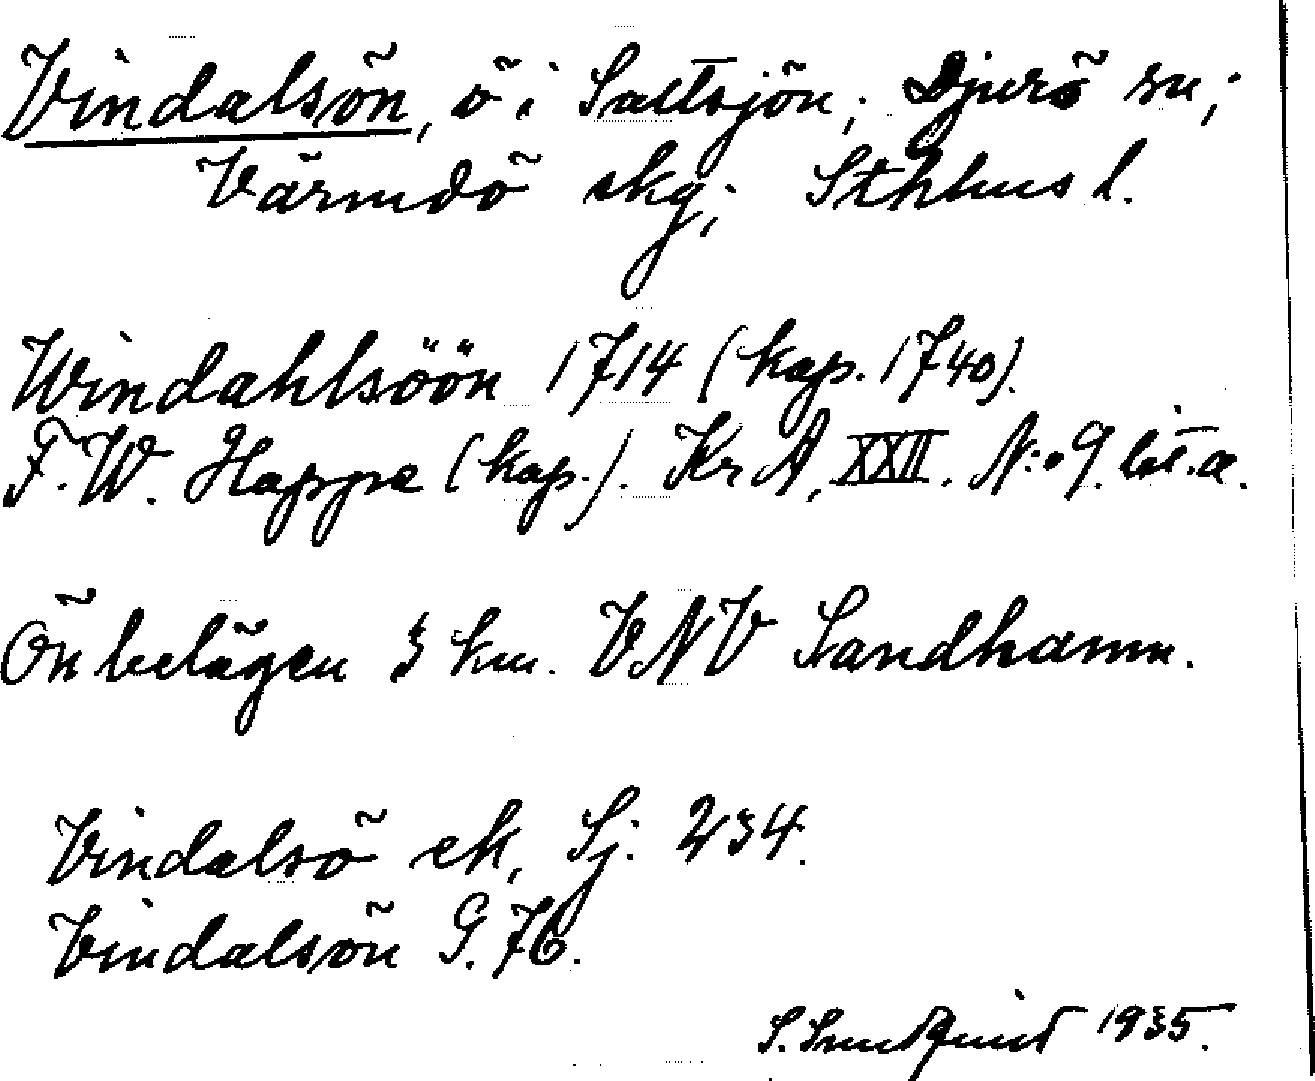 Vindalsön, ö i Saltsjön; Djurö sn;
Värmdö skg; Sthlms l.
Windahlsöön 1714 (kop. 1740).
F. W. Happe (kop.). Kr A, XXII. N:o 9. lit. a.
Ön belägen 3 km. VNV Sandhamn.
Vindalsö ek, Sj. 234.
Vindalsön G. 76.
S. Lundquist 1935.